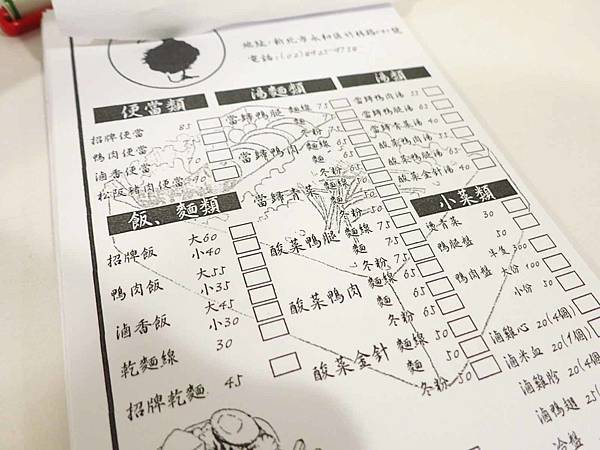 地址:新北市永和區竹林路191號
電話:(02)8925-9738
便當類
招牌便當 85
鴨肉便當
滷香便當 70
松阪豬肉便當 90
飯、麵類
招牌飯 大60
小40
鴨肉飯 大55
小35
滷香飯 大45
小30
乾麵線 30
招牌乾麵 45
湯麵類
當歸鴨腿 麵線 75
麵 75
冬粉 75
當歸鴨肉 麵線 65
麵 65
冬粉 65
當歸青菜 麵線 50
麵 50
冬粉 50
酸菜鴨腿 麵線 75
麵 75
冬粉 75
酸菜鴨肉 麵線 65
麵 65
冬粉 65
酸菜金針 麵線 50
麵 50
冬粉 50
湯類
當歸鴨肉湯 55
當歸鴨腿湯 65
當歸青菜湯 40
酸菜鴨肉湯 55
酸菜鴨腿湯 65
酸菜金針湯 40
小菜類
燙青菜 30
鴨腿盤 50
鴨肉盤 半隻 300
大份 100
小份 50
滷雞心 20(4個)
滷米血 20(1個)
滷雞胗 20(4
滷鴨翅 25(
冷盤